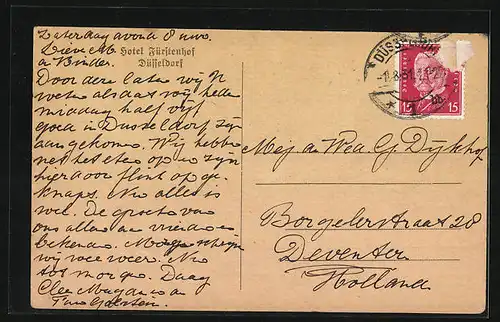 Zaterdag avond 8 uur.
Lieve M
Hotel Fürstenhof
Düsseldorf
Door deze laten wij U
weten als dat wij hede
middag half vijf
goed in Dusseldorf zijn
aangekomen. Wij hebbe
net het eten op en zijn
hier voor flink op ge-
knapt. Nu alles is
wel. De groete van
ons allen aan vrienden en
bekenden.
wij weer weer. Nu
tot morge. Daag
DÜSSELDORF
15 15
Mej a Wed G. Dijkhof
Borgelerstraat 28
Deventer
Holland